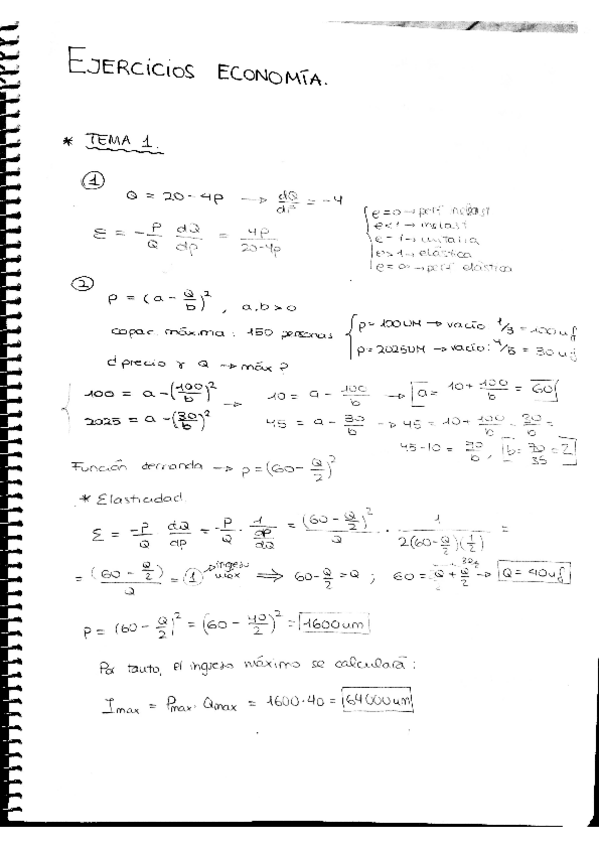 EJERCICIOS ECONOMÍA.
* TEMA 1.
①
Q = 20 - 4p → dQ/dp = -4
ε = - P/Q dQ/dp = 4p/20-4p
e=0 → perf inelást
e<1 → inelast
e=1 → unitaria
e>1 → elástica
e=∞ → perf elástica
②
p = (a - Q/b)², a,b>0
capac. máxima: 150 personas
p=100UM → vacío 1/3 = 100uf
p=2025UM → vacío: 4/5 = 30uf
d precio y Q → máx?
100 = a - (100/b)² → 10 = a - 100/b → a = 10 + 100/b = 60
2025 = a - (30/b)² 45 = a - 30/b → 45 = 10 + 100/b - 30/b =
45-10 = 70/b, b = 70/35 = 2
Función demanda → p = (60 - Q/2)²
* Elasticidad
ε = -P/Q dQ/dp = -P/Q · 1/dp/dQ = (60 - Q/2)²/Q · 1/2(60-Q/2)(1/2) =
= (60 - Q/2)/Q = ① ingreso max ⟹ 60-Q/2 = Q; 60 = Q + Q/2 → Q = 40uf
P = (60 - Q/2)² = (60 - 40/2)² = 1600um
Por tanto, el ingreso máximo se calculará:
Imax = Pmax · Qmax = 1600·40 = 64000um